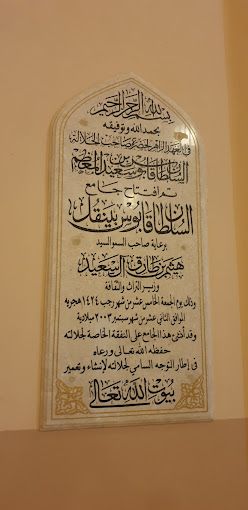 بسم الله الرحمن الرحيم
بحمد الله وتوفيقه
في العهد الزاهر لحضرة صاحب الجلالة
السلطان قابوس بن سعيد المعظم
تم افتتاح جامع
السلطان قابوس بينقل
برعاية صاحب السمو السيد
هيثم بن طارق آل سعيد
وزير التراث والثقافة
وذلك يوم الجمعة الخامس عشر من شهر رجب ١٤٢٤ هجرية
الموافق الثاني عشر من شهر سبتمبر ٢٠٠٣ ميلادية
وقد أنشئ هذا الجامع على النفقة الخاصة لجلالته
حفظه الله تعالى ورعاه
في إطار التوجه السامي لجلالته لإنشاء وتعمير
بيوت الله تعالى